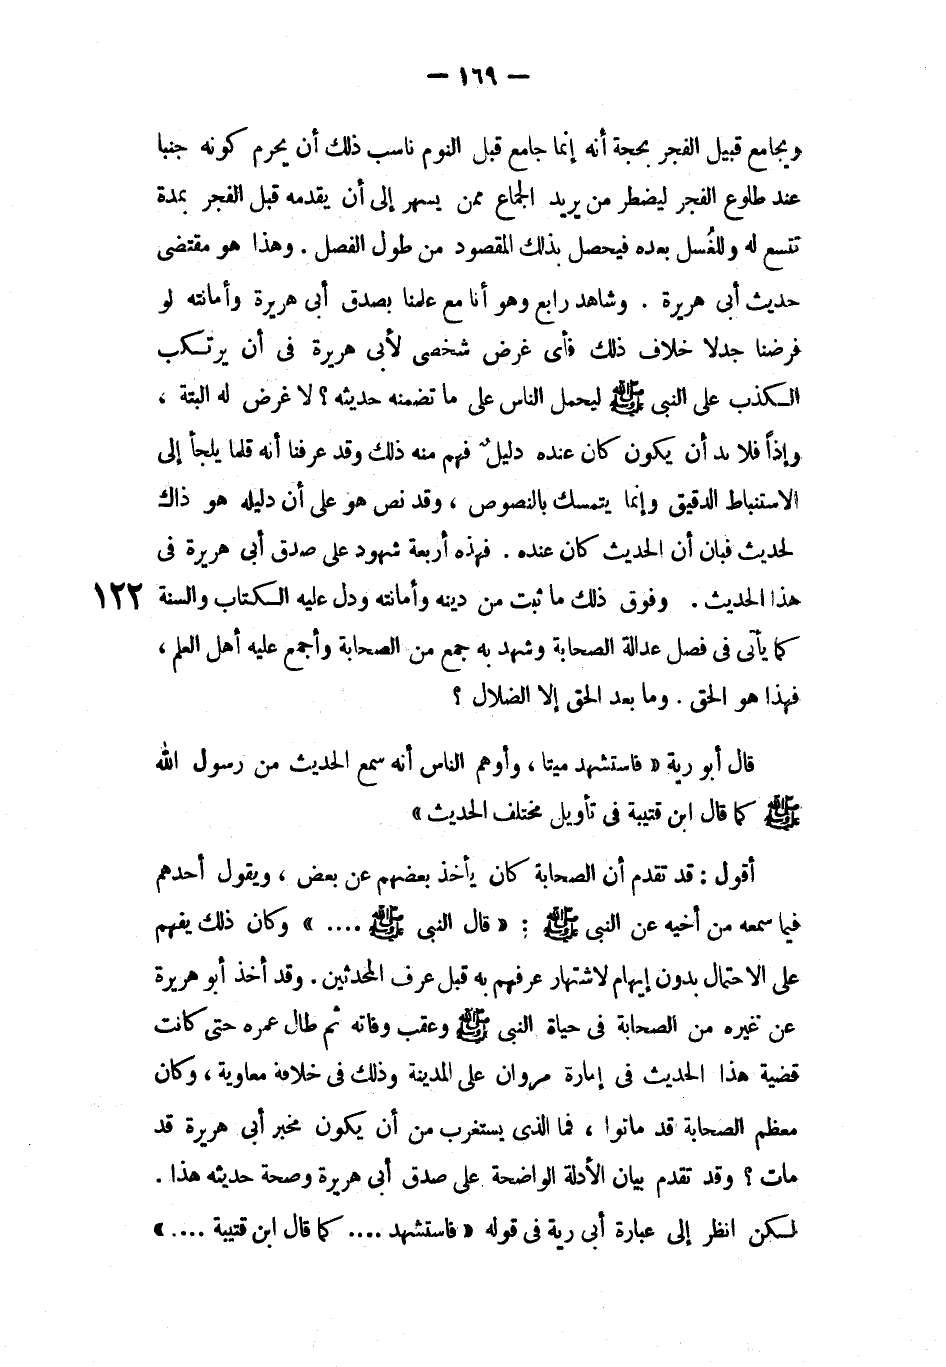 — ١٦٩ —
ويجامع قبيل الفجر بحجة أنه إنما جامع قبل النوم ناسب ذلك أن يحرم كونه جنبا
عند طلوع الفجر ليضطر من يريد الجماع ممن يسهر إلى أن يقدمه قبل الفجر بمدة
تتسع له وللغُسل بعده فيحصل بذلك المقصود من طول الفصل . وهذا هو مقتضى
حديث أبى هريرة . وشاهد رابع وهو أنا مع علمنا بصدق أبى هريرة وأمانته لو
فرضنا جدلا خلاف ذلك فأى غرض شخصى لأبى هريرة فى أن يرتكب
الكذب على النبى ﷺ ليحمل الناس على ما تضمنه حديثه ؟ لا غرض له البتة ،
وإذاً فلا بد أن يكون كان عنده دليل فهم منه ذلك وقد عرفنا أنه قلما يلجأ إلى
الاستنباط الدقيق وإنما يتمسك بالنصوص ، وقد نص هو على أن دليله هو ذاك
لحديث فبان أن الحديث كان عنده . فهذه أربعة شهود على صدق أبى هريرة فى
هذا الحديث . وفوق ذلك ما ثبت من دينه وأمانته ودل عليه الكتاب والسنة ١٢٢
كما يأتى فى فصل عدالة الصحابة وشهد به جمع من الصحابة وأجمع عليه أهل العلم ،
فهذا هو الحق . وما بعد الحق إلا الضلال ؟
قال أبو رية « فاستشهد ميتا ، وأوهم الناس أنه سمع الحديث من رسول الله
ﷺ كما قال ابن قتيبة فى تأويل مختلف الحديث »
أقول : قد تقدم أن الصحابة كان يأخذ بعضهم عن بعض ، ويقول أحدهم
فيما سمعه من أخيه عن النبى ﷺ : « قال النبى ﷺ .... » وكان ذلك يفهم
على الاحتمال بدون إيهام لاشتهار عرفهم به قبل عرف المحدثين . وقد أخذ أبو هريرة
عن غيره من الصحابة فى حياة النبى ﷺ وعقب وفاته ثم طال عمره حتى كانت
قضية هذا الحديث فى إمارة مروان على المدينة وذلك فى خلافة معاوية ، وكان
معظم الصحابة قد ماتوا ، فما الذى يستغرب من أن يكون مخبر أبى هريرة قد
مات ؟ وقد تقدم بيان الأدلة الواضحة على صدق أبى هريرة وصحة حديثه هذا .
لكن انظر إلى عبارة أبى رية فى قوله « فاستشهد .... كما قال ابن قتيبة .... »